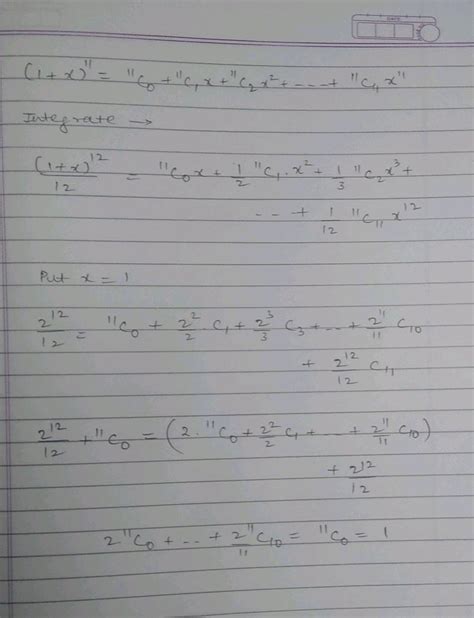 DATE
(1+x)^11 = ^11C_0 + ^11C_1 x + ^11C_2 x^2 + - - - + ^11C_4 x^11
Integrate →
(1+x)^12 / 12 = ^11C_0 x + 1/2 ^11C_1 . x^2 + 1/3 ^11C_2 x^3 +
- - - + 1/12 ^11C_11 x^12
Put x = 1
2^12/12 = ^11C_0 + 2^2/2 . C_1 + 2^3/3 C_3 + - .. + 2^11/11 C_10
+ 2^12/12 C_11
2^12/12 + ^11C_0 = (2 . ^11C_0 + 2^2/2 C_1 + - .. + 2^11/11 C_10)
+ 2^12/12
2 ^11C_0 + - .. + 2^11/11 C_10 = ^11C_0 = 1